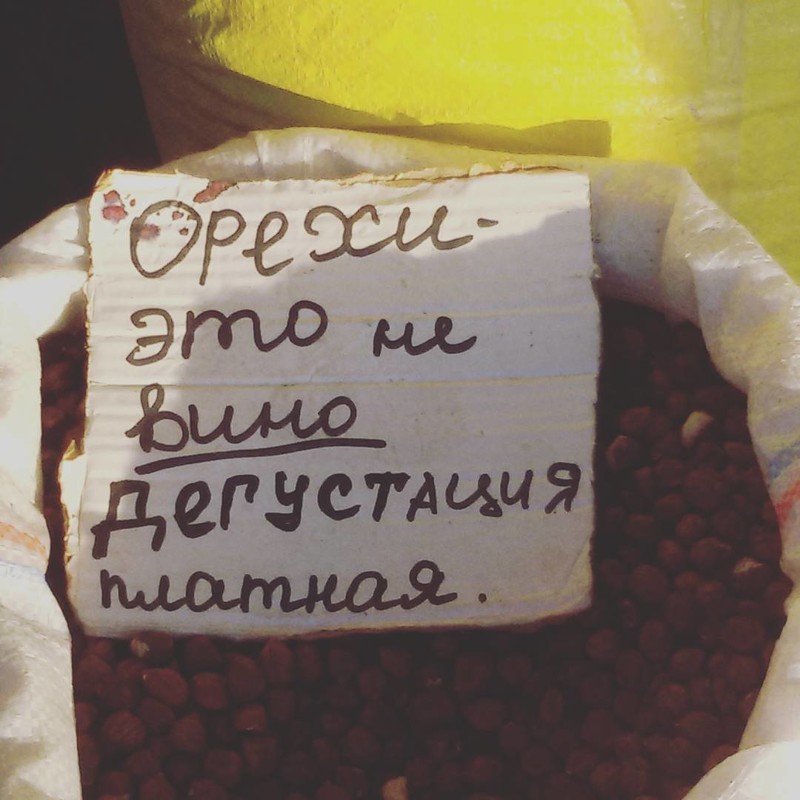 Орехи-
это не
вино
Дегустация
платная.